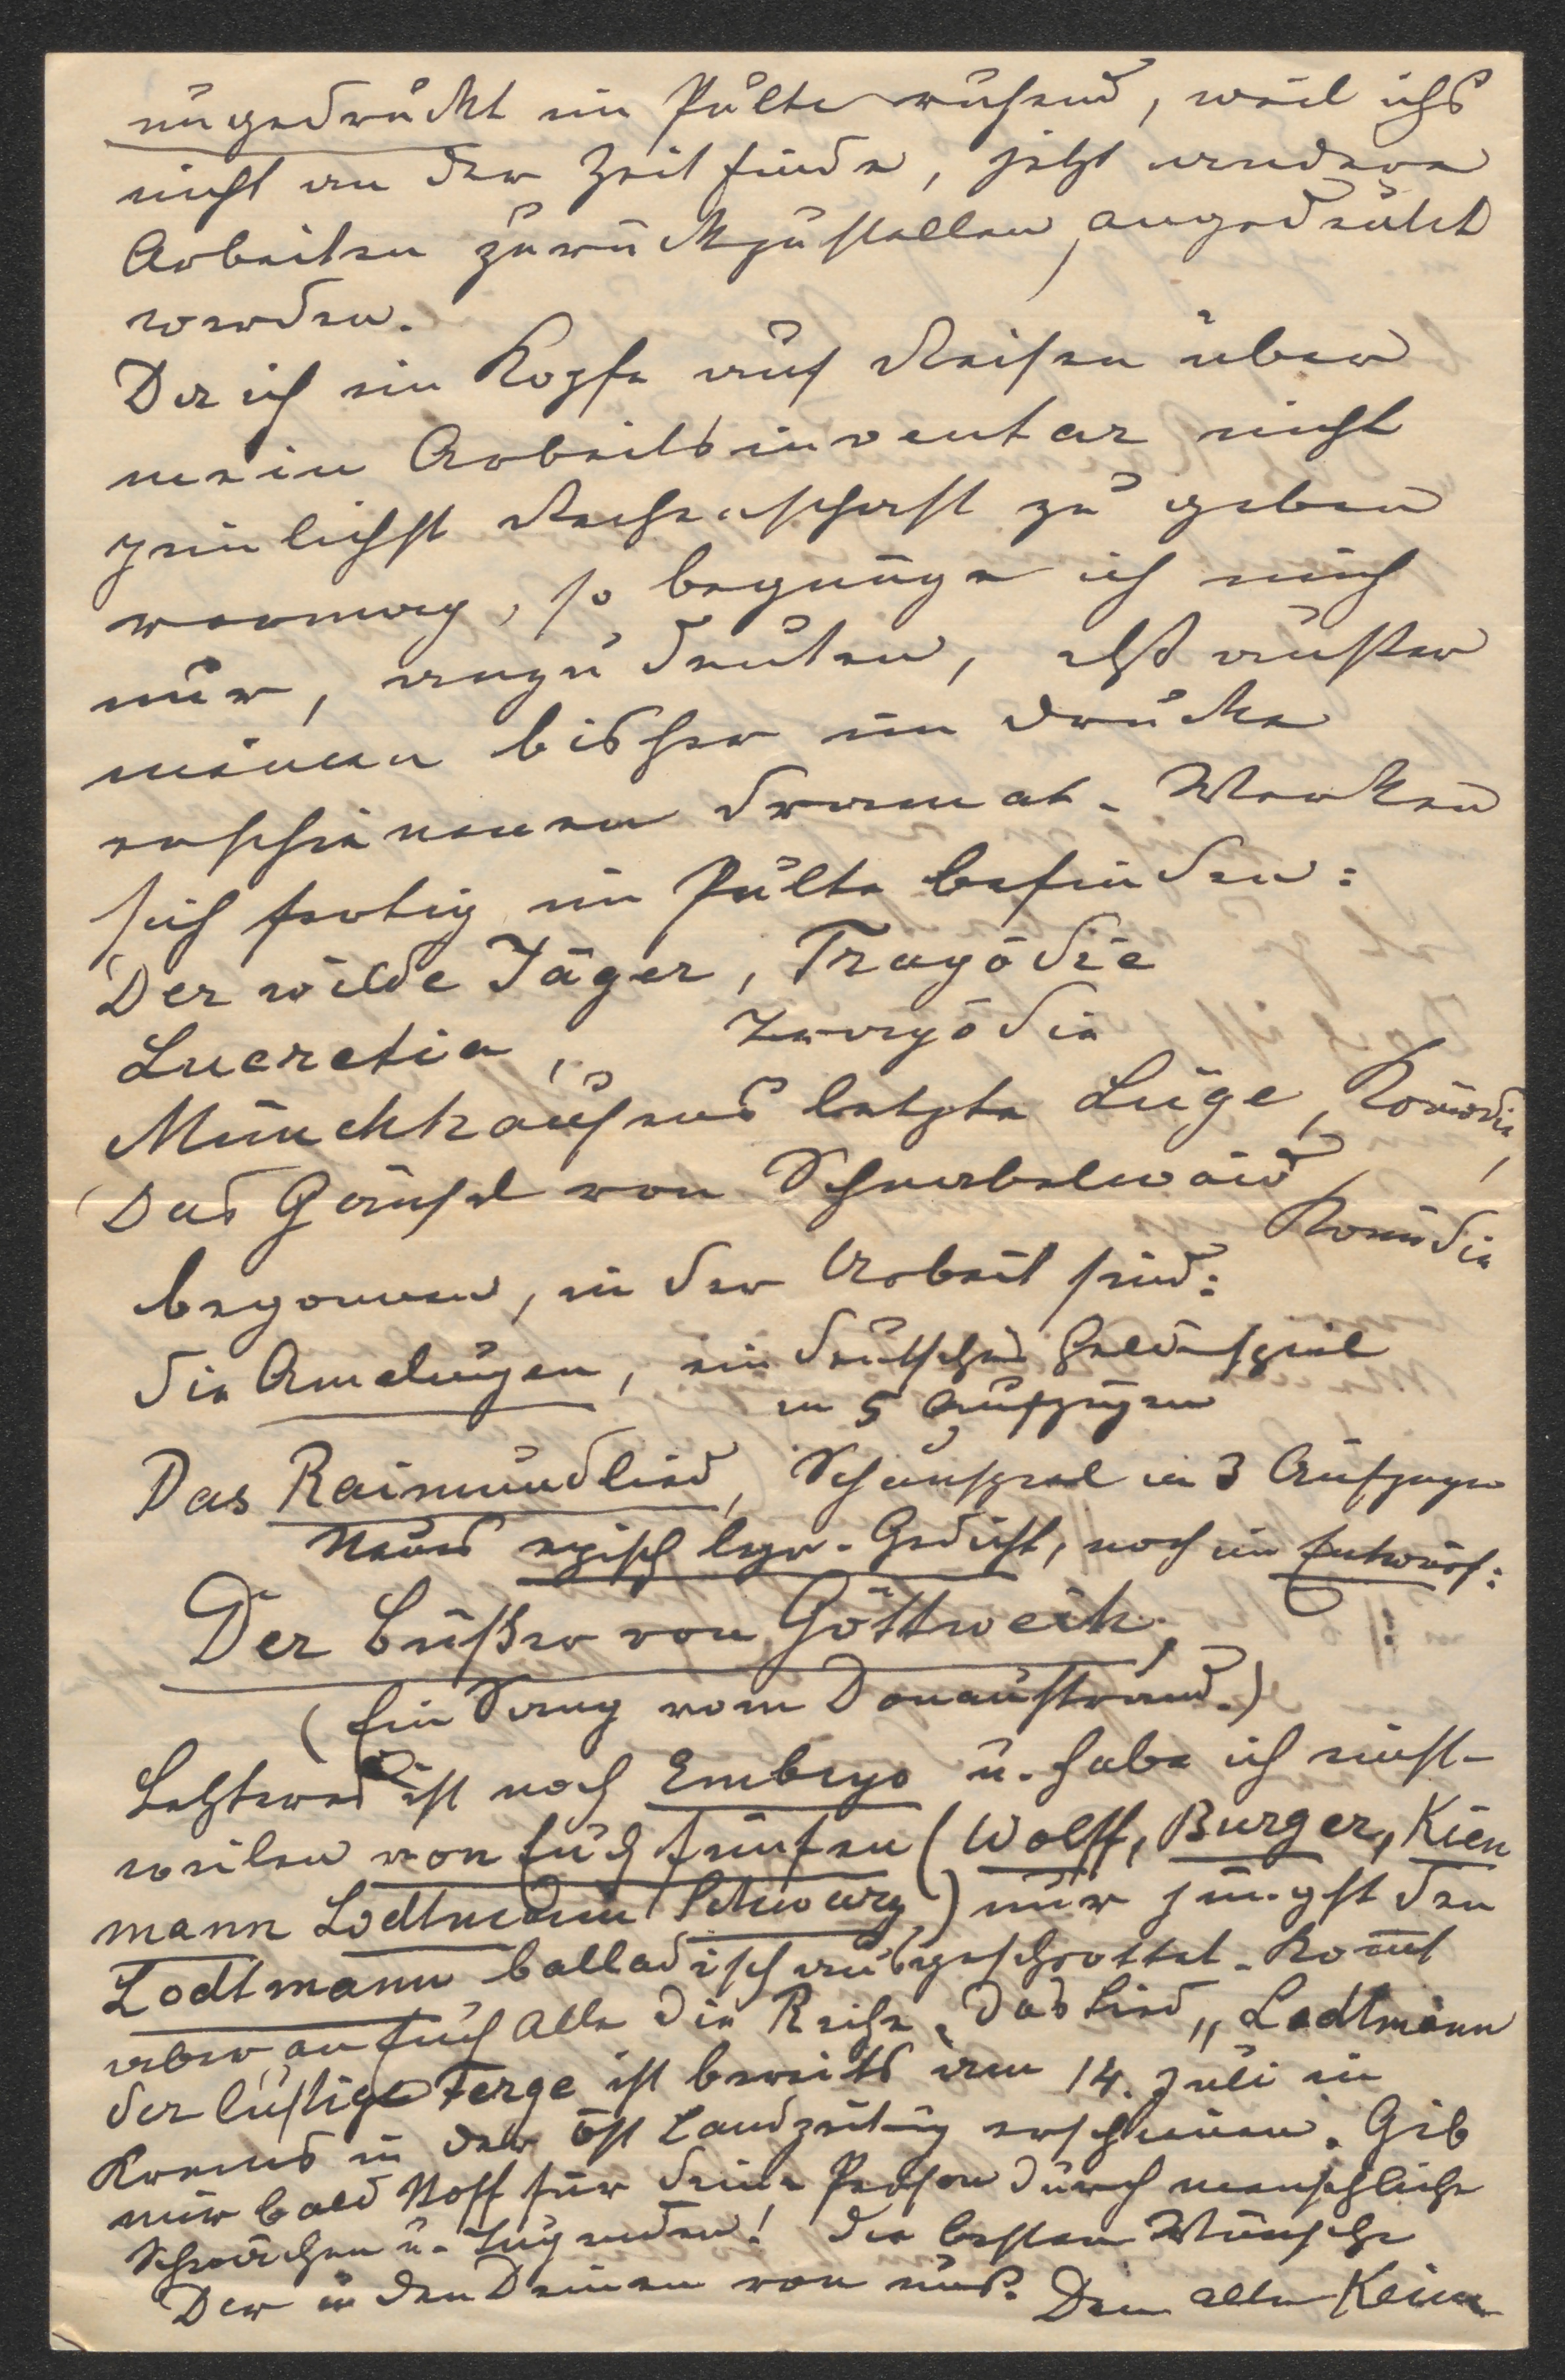 ungedruckt im Pulte ruhend, weil ichs
nicht an der Zeit finde, jetzt andere
Arbeiten zurückzustellen, angedeutet
werden.
Da ich im Kopfe auf Reisen über
mein Arbeitsinventar nicht
peinlichst Rechenschaft zu geben
vermag, so begnüge ich mich
nur, anzudeuten, daß außer
meinen bisher im Drucke
erschienenen dramat. Werken
sich fertig im Pulte befinden:
Der wilde Jäger, Tragödie
Lucretia, Tragödie
Münchhausens letzte Lüge, Komödie,
Das Gänsel von Schnabelwaid,
Komödie
begonnen, in der Arbeit sind:
Die Amelungen, ein deutsches Heldenspiel
in 5 Aufzügen
Das Raimundlied, Schauspiel in 3 Aufzügen
Neues episch lyr. Gedicht, noch im Entwurf:
Der Büßer von Göttweih,
(Ein Sang vom Donaustrand.)
Letzteres ist noch Embryo u. habe ich einst-
weilen von Euch fünfen (Wolff, Burger, Kien
mann Lodtmann Schwarz) nur jüngst den
Lodtmann balladisch ausgeschrottet. Kommt
aber an Euch Alle die Reihe. Das Lied „Lodtmann
der lustige Ferge ist bereits am 14. Juli in
Krems in der öst Landzeitung erschienen. Gib
mir bald Stoff für Deine Person durch menschliche
Schwächen u. Tugenden! Die besten Wünsche
Dir u den Deinen von uns. Dein alter Keim